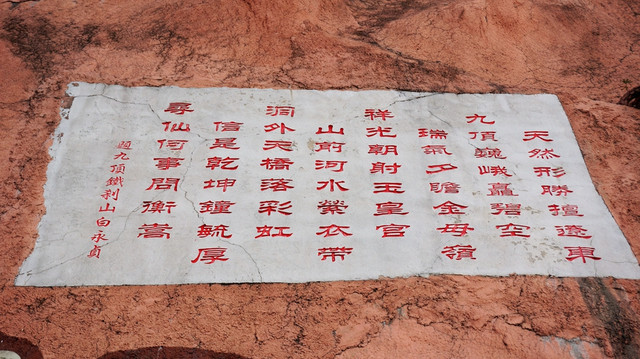 天然形勝擅遼東
九頂巍峨矗碧空
瑞氣夕瞻金母嶺
祥光朝射玉皇宮
山前河水縈衣帶
洞外天橋落彩虹
信是乾坤鐘毓厚
尋仙何事問衡嵩
題九頂鐵刹山白永貞